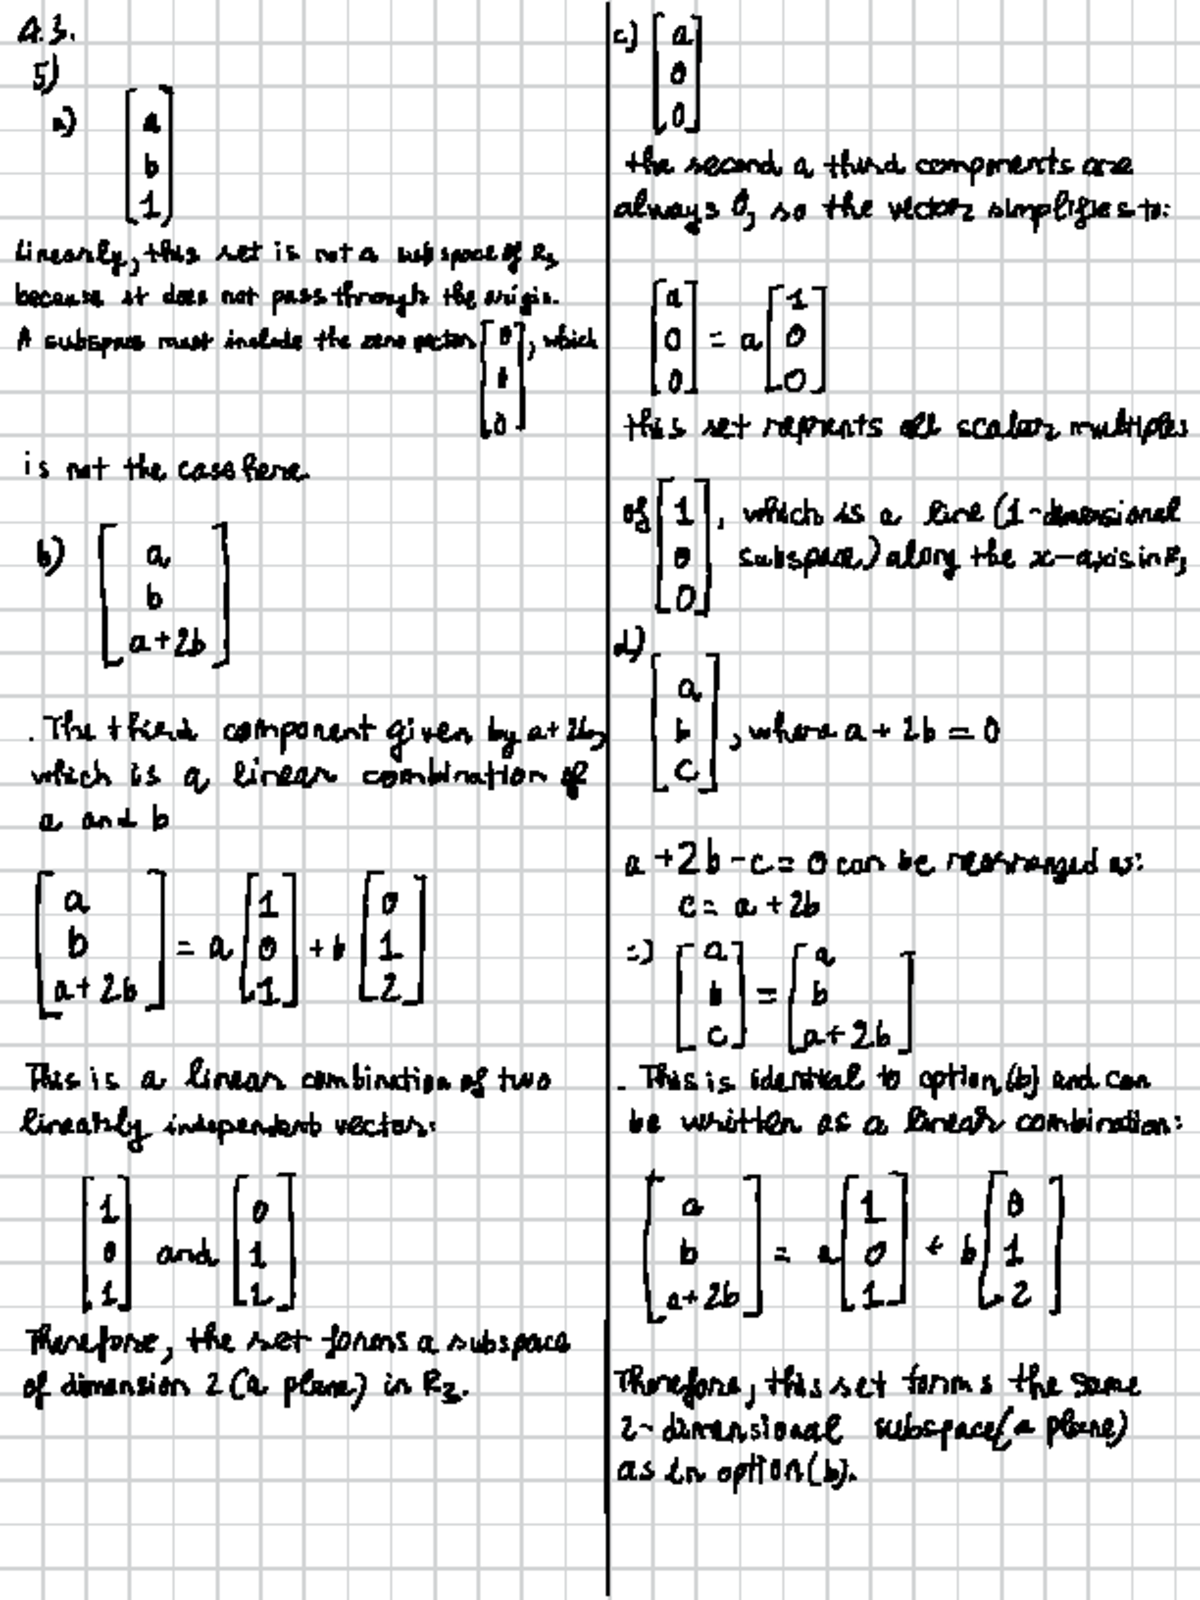 4.3.
5)
a) [a
b
1]
Linearly, this set is not a subspace of R3
because it does not pass through the origin.
A subspace must include the zero vector [0
0
0], which
is not the case here.
b) [a
b
a+2b]
. The third component given by a+2b,
which is a linear combination of
a and b
[a
b
a+2b] = a [1
0
1] + b [0
1
2]
This is a linear combination of two
linearly independent vector:
[1
0
1] and [0
1
1]
Therefore, the set forms a subspace
of dimension 2 (a plane) in R3.
c) [a
0
0]
the second a third components are
always 0, so the vector simplifies to:
[a
0
0] = a [1
0
0]
this set reprents all scalar multiples
of [1
0
0], which is a line (1-dimensional
subspace) along the x-axis in R3
d)
[a
b
c], where a + 2b = 0
a + 2b - c = 0 can be rearranged as:
c = a + 2b
=) [a
b
c] = [a
b
a+2b]
. This is identical to option (b) and can
be written as a linear combination:
[a
b
a+2b] = a [1
0
1] + b [0
1
2]
Therefore, this set forms the same
2-dimensional subspace (a plane)
as in option (b).